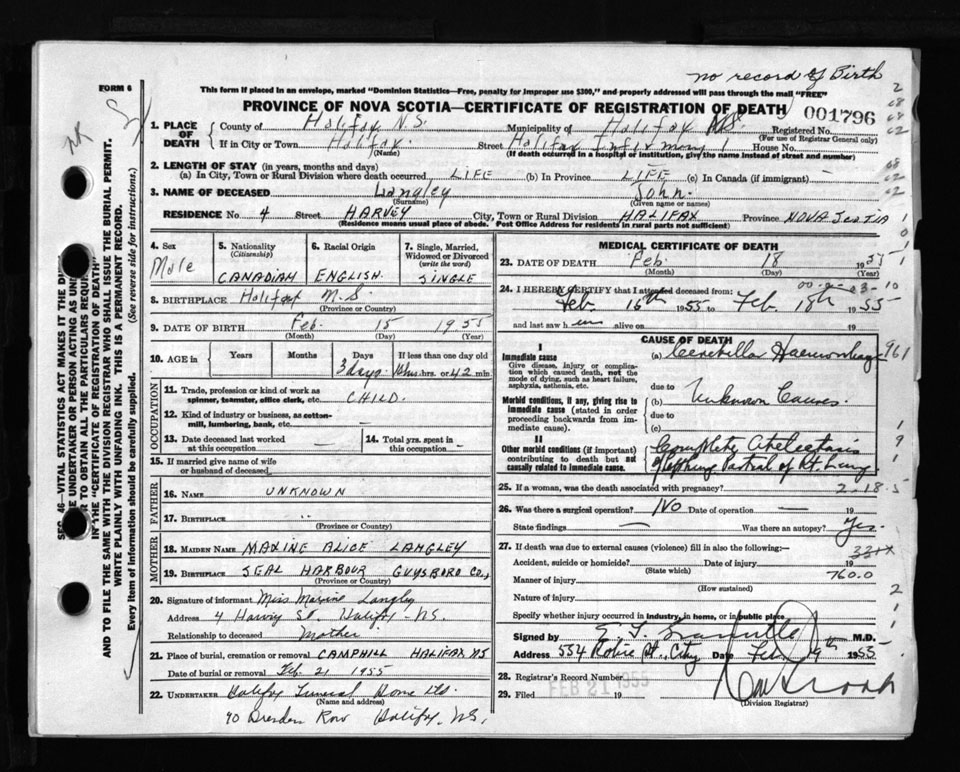 no record of Birth
FORM 6
This form if placed in an envelope, marked "Dominion Statistics—Free, penalty for improper use $300," and properly addressed will pass through the mail "FREE"
PROVINCE OF NOVA SCOTIA—CERTIFICATE OF REGISTRATION OF DEATH
001796
1. PLACE OF DEATH
County of Halifax N.S. Municipality of Halifax N.S. Registered No.
(For use of Registrar General only)
If in City or Town Halifax Street Halifax Infirmary House No.
(Name) (If death occurred in a hospital or institution, give the name instead of street and number)
2. LENGTH OF STAY (in years, months and days)
(a) In City, Town or Rural Division where death occurred LIFE (b) In Province LIFE (c) In Canada (if immigrant) —
3. NAME OF DECEASED Langley John.
(Surname) (Given name or names)
RESIDENCE No. 4 Street HARVEY City, Town or Rural Division HALIFAX Province NOVA SCOTIA
(Residence means usual place of abode. Post Office Address for residents in rural parts not sufficient)
4. Sex Male
5. Nationality (Citizenship) CANADIAN
6. Racial Origin ENGLISH.
7. Single, Married, Widowed or Divorced (write the word) SINGLE
8. BIRTHPLACE Halifax N.S.
(Province or Country)
9. DATE OF BIRTH Feb. 15 1955
(Month) (Day) (Year)
10. AGE in Years Months Days If less than one day old
3 days hrs. or 42 min.
OCCUPATION
11. Trade, profession or kind of work as spinner, teamster, office clerk, etc. CHILD.
12. Kind of industry or business, as cotton-mill, lumbering, bank, etc. —
13. Date deceased last worked at this occupation —
14. Total yrs. spent in this occupation —
15. If married give name of wife or husband of deceased —
FATHER
16. NAME UNKNOWN
17. BIRTHPLACE "
(Province or Country)
MOTHER
18. MAIDEN NAME MAXINE ALICE LANGLEY
19. BIRTHPLACE SEAL HARBOUR GUYSBORO CO.,
(Province or Country)
20. Signature of informant Miss Maxine Langley
Address 4 Harvey St. Halifax N.S.
Relationship to deceased Mother
21. Place of burial, cremation or removal CAMPHILL HALIFAX NS
Date of burial or removal Feb. 21 1955
22. UNDERTAKER Halifax Funeral Home Ltd.
(Name and address)
90 Dresden Row Halifax, N.S.
MEDICAL CERTIFICATE OF DEATH
23. DATE OF DEATH Feb. 18 1955
(Month) (Day) (Year)
24. I HEREBY CERTIFY that I attended deceased from:
Feb. 16th 1955 Feb 18th 1955
and last saw h im alive on 19
CAUSE OF DEATH
I
Immediate cause
Give disease, injury or complication which caused death, not the mode of dying, such as heart failure, asphyxia, asthenia, etc.
(a) Cerebellar Haemorrhage 961
due to
Morbid conditions, if any, giving rise to immediate cause (stated in order proceeding backwards from immediate cause).
(b) Unknown Causes.
due to
(c)
II
Other morbid conditions (if important) contributing to death but not causally related to immediate cause.
Complete Atelectasis
of left lung Partial of Rt. Lung
25. If a woman, was the death associated with pregnancy?
2-18-5
26. Was there a surgical operation? No Date of operation — 19
State findings — Was there an autopsy? Yes.
27. If death was due to external causes (violence) fill in also the following:—
Accident, suicide or homicide? Date of injury 19
(State which)
Manner of injury 760.0
(How sustained)
Nature of injury
Specify whether injury occurred in industry, in home, or in public place
Signed by M.D.
Address 554 Robie St., City Date Feb 19th 1955
28. Registrar's Record Number
29. Filed FEB 21 1955 19
(Division Registrar)
SEC. 46—VITAL STATISTICS ACT MAKES IT THE
UNDERTAKER OR PERSON ACTING AS
TO OBTAIN ALL THE PARTICULARS
IN THE "CERTIFICATE OF REGISTRATION OF DEATH"
AND TO FILE THE SAME WITH THE DIVISION REGISTRAR WHO SHALL ISSUE THE BURIAL PERMIT.
WRITE PLAINLY WITH UNFADING INK. THIS IS A PERMANENT RECORD.
Every item of information should be carefully supplied. (See reverse side for instructions.)